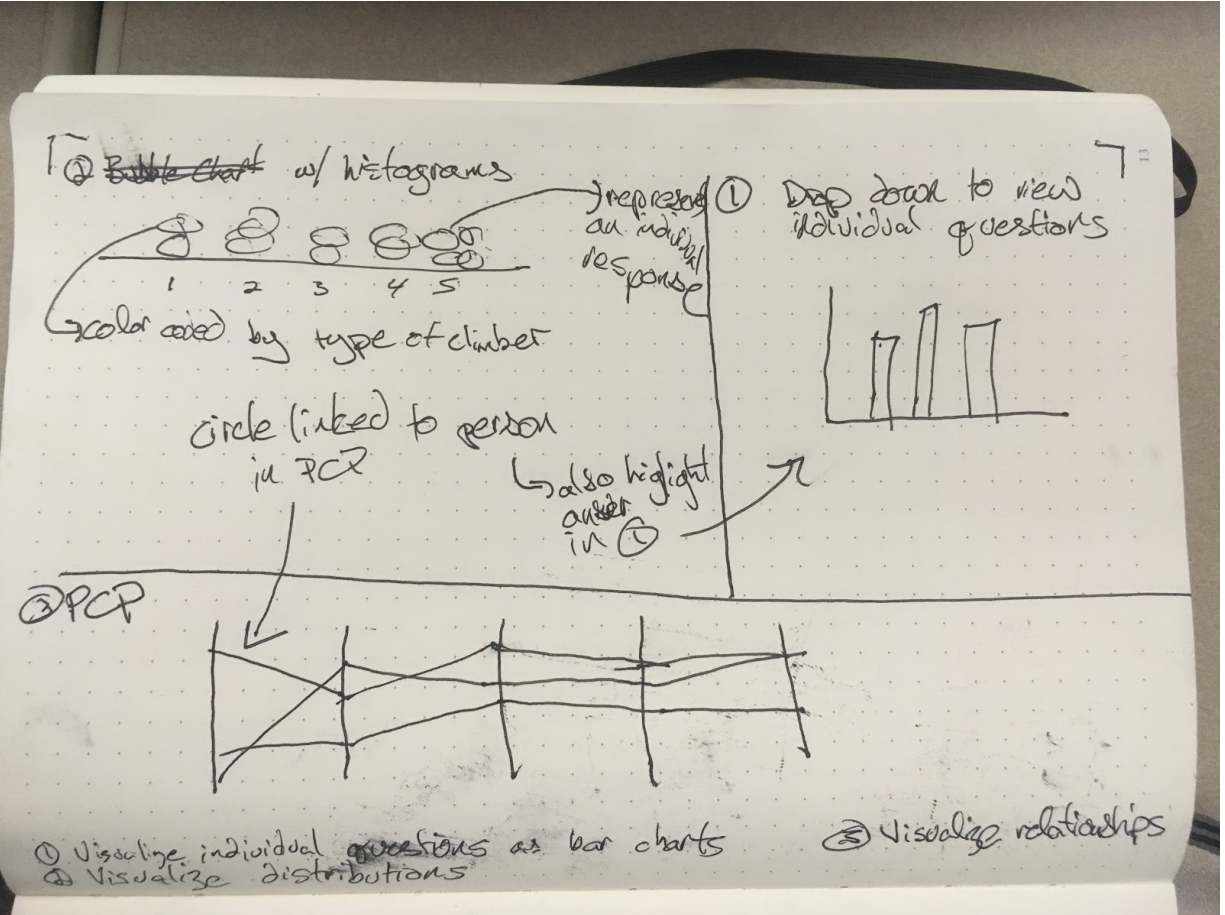 ② Bubble Chart w/ histograms
1 2 3 4 5
represents
an individual
response
color coded by type of climber
circle linked to person
in PCP
also higlight
answer
in ①
① Drop down to view
individual questions
13
③ PCP
① Visualize individual questions as bar charts
② Visualize distributions
③ Visualize relationships